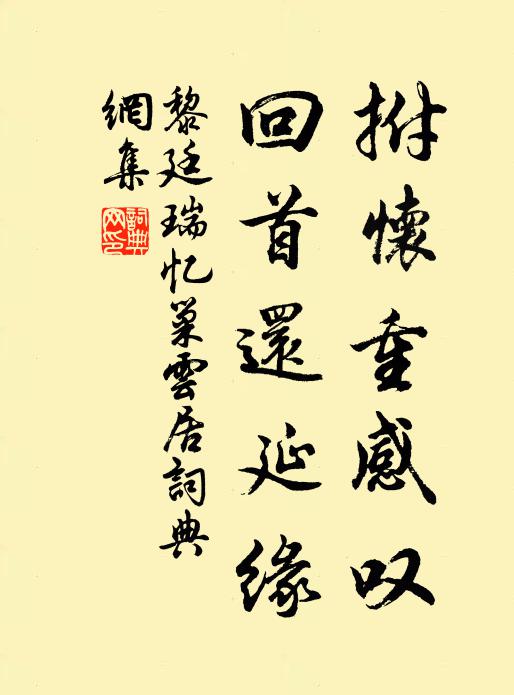 拊懷重感叹
回首還延緣
黎廷瑞忆巢雲居詞典
網集
詞典
网印